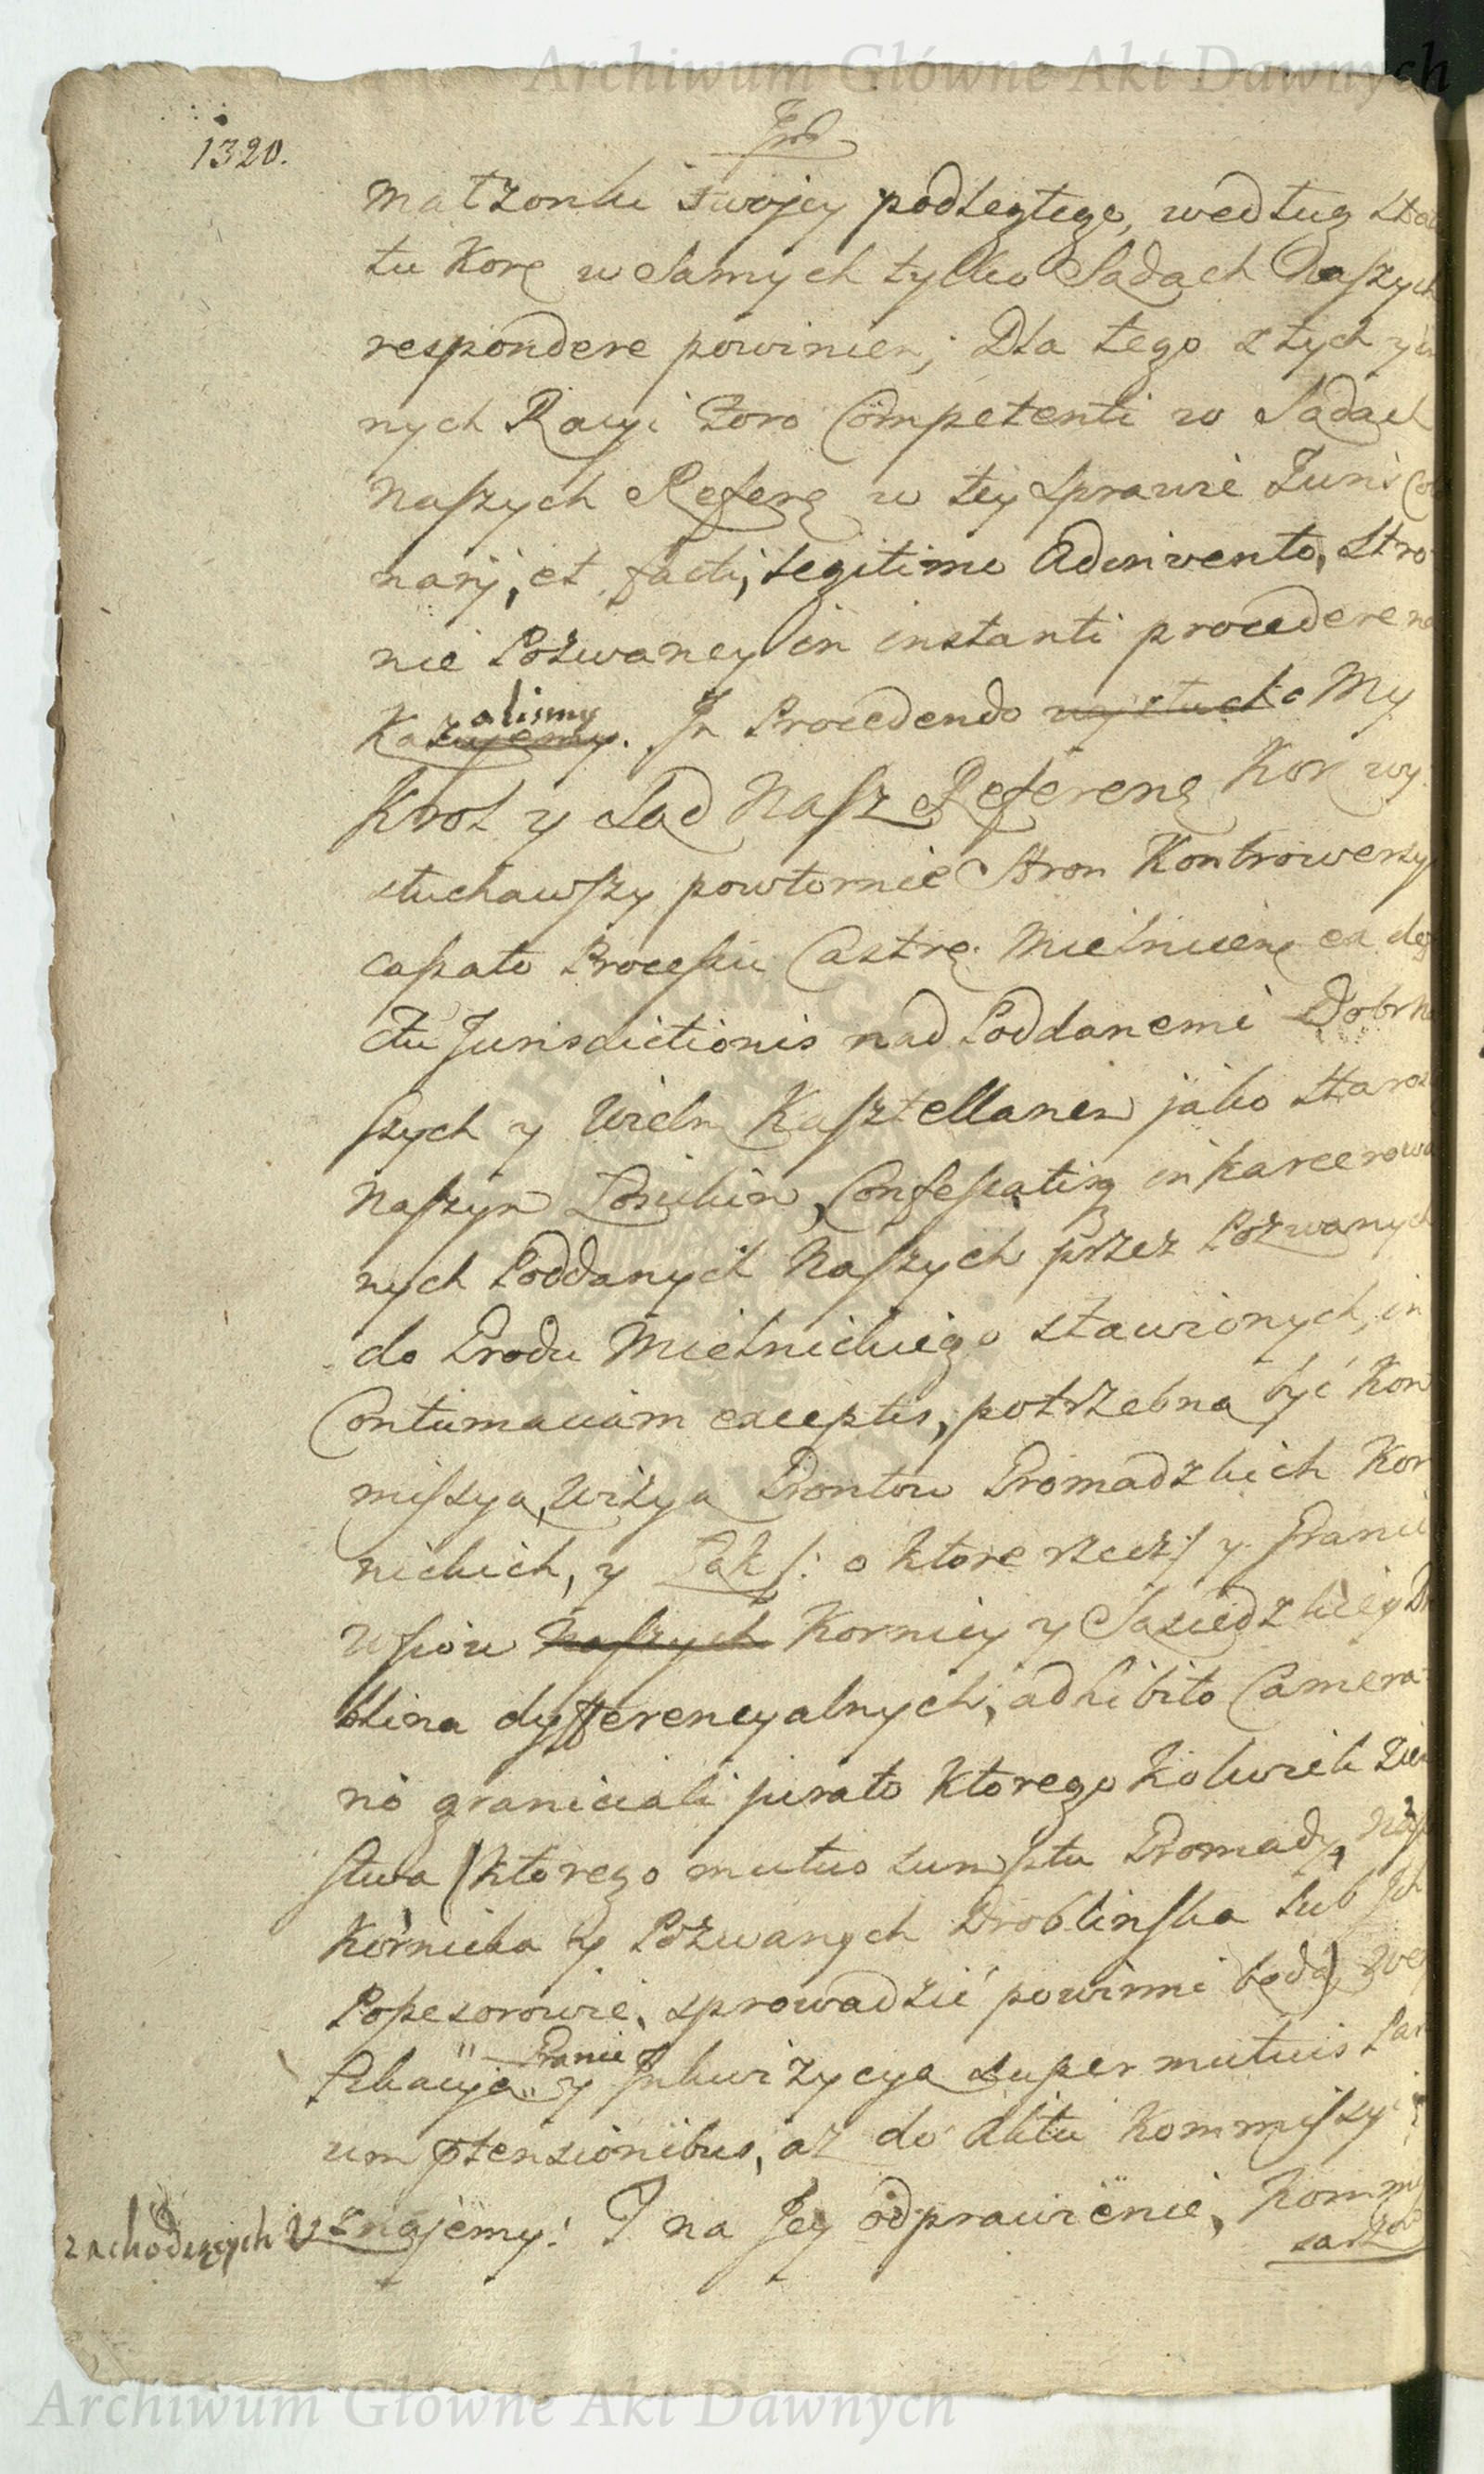 Archiwum Główne Akt Dawnych
1320.
małżonki swojey podległego, według
tu Korẹ w samych tylko Sądach Naszych
respondere powinien; Dla tego z tych y in
nych Racyi Foro Competenti w Sądach
Naszych Referẹ w tey sprawie Juris
narij, et facti, legitime Adinvento, Stro
nie Pozwaney in instanti procedere na
Kazujemy. alismy In Procedendo wysłucha My
Krol y Sąd Nasz Referenẹ Kor wy
słuchawszy powtornie Stron Kontrowersyi
cassato Processu Castrẹ Mielnicenẹ ex defe
ctu Jurisdictionis nad Poddanemi Dobr Na
szych y Wieln Kasztellanem jako Staros
Naszym Łosickim, Confessatis inkarcerowa
nych Poddanych Naszych przez Pozwanych
do Grodu Mielnickiego stawionych, in
Contumaciam exceptis, potrzebna być Kom
missya, Wizya Gruntow Gromadzkich Kor
nickich, y Łąk /: o ktore rzecz:/ y Granic
Wsiow Naszych Kornicy y Sąsiedzkiey D
blina dyfferencyalnych, adhibito Camera
rio graniciali jurato ktorego kolwiek Ziem
stwa /ktorego mutuo sumptu Gromady Nasz
Kornicka y Pozwanych Droblinska lub Jch
Possesorowie, sprowadzić powinni będą/ Wery
fikacya Granic y Inkwizycya super mutuis Par
tium ptensionibus, aż do Aktu Kommissyi
zachodzących Uznajemy: I na Jey odprawienie, Kommi
sarzow
Archiwum Główne Akt Dawnych